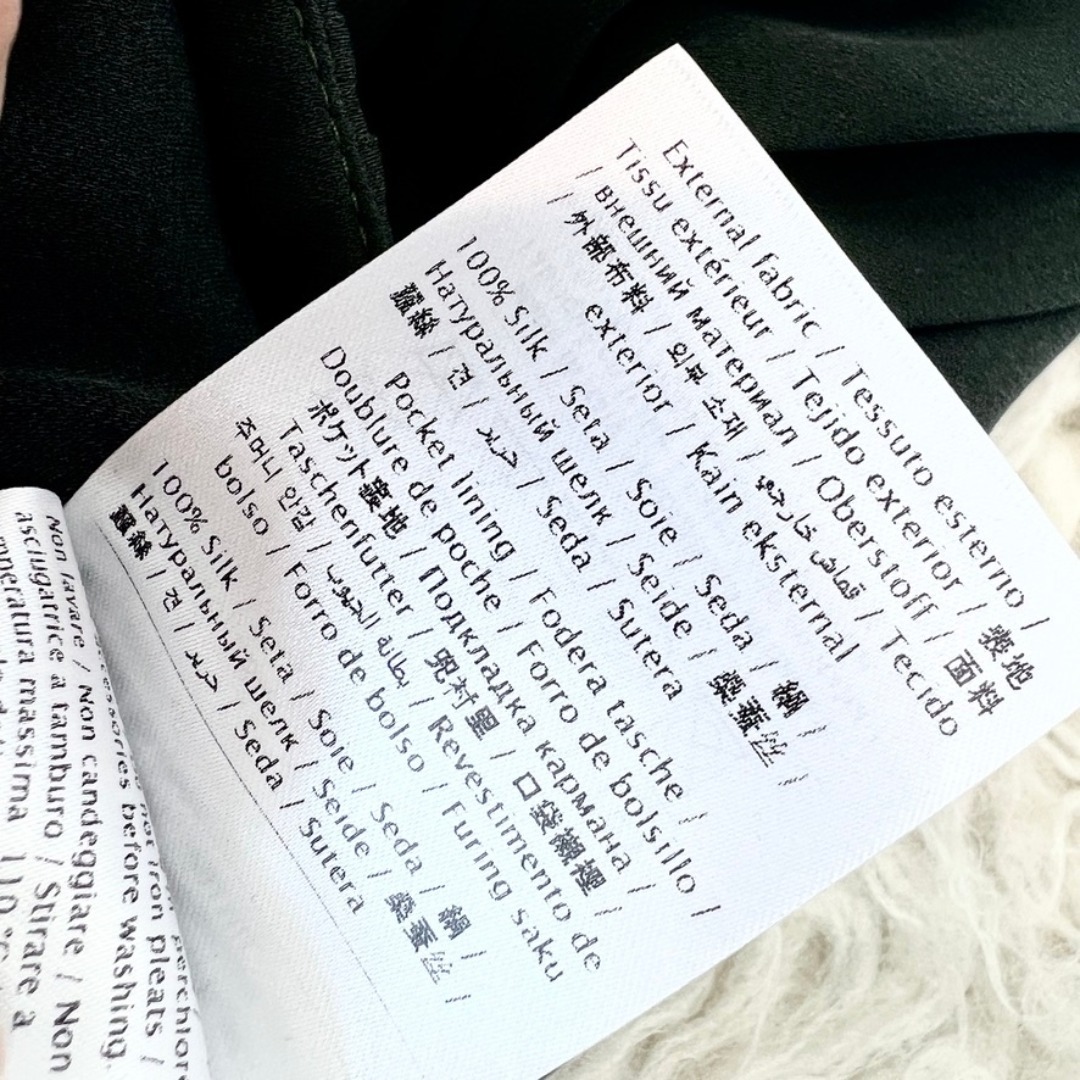 External fabric / Tessuto esterno /
Tissu extérieur / Tejido exterior / 表地
/ внешний материал / Oberstoff / 面料
/ 外部布料 / 외부 소재 / قماش خارجي / Tecido
exterior / Kain eksternal
100% Silk / Seta / Soie / Seda / 絹 /
Натуральный шелк / Seide / 桑蚕丝 /
蠶絲 / 견 / حرير / Seda / Sutera
Pocket lining / Fodera tasche /
Doublure de poche / Forro de bolsillo /
ポケット裏地 / Подкладка кармана /
Taschenfutter / 兜衬里 / 口袋襯裡 /
주머니 안감 / بطانة الجيوب / Revestimento de
bolso / Forro de bolso / Furing saku
100% Silk / Seta / Soie / Seda / 絹 /
Натуральный шелк / Seide / 桑蚕丝 /
蠶絲 / 견 / حرير / Seda / Sutera
iron pleats /
before washing.
Non lavare / Non candeggiare / Non
asciugarrie a tamburo / Stirare a
massima